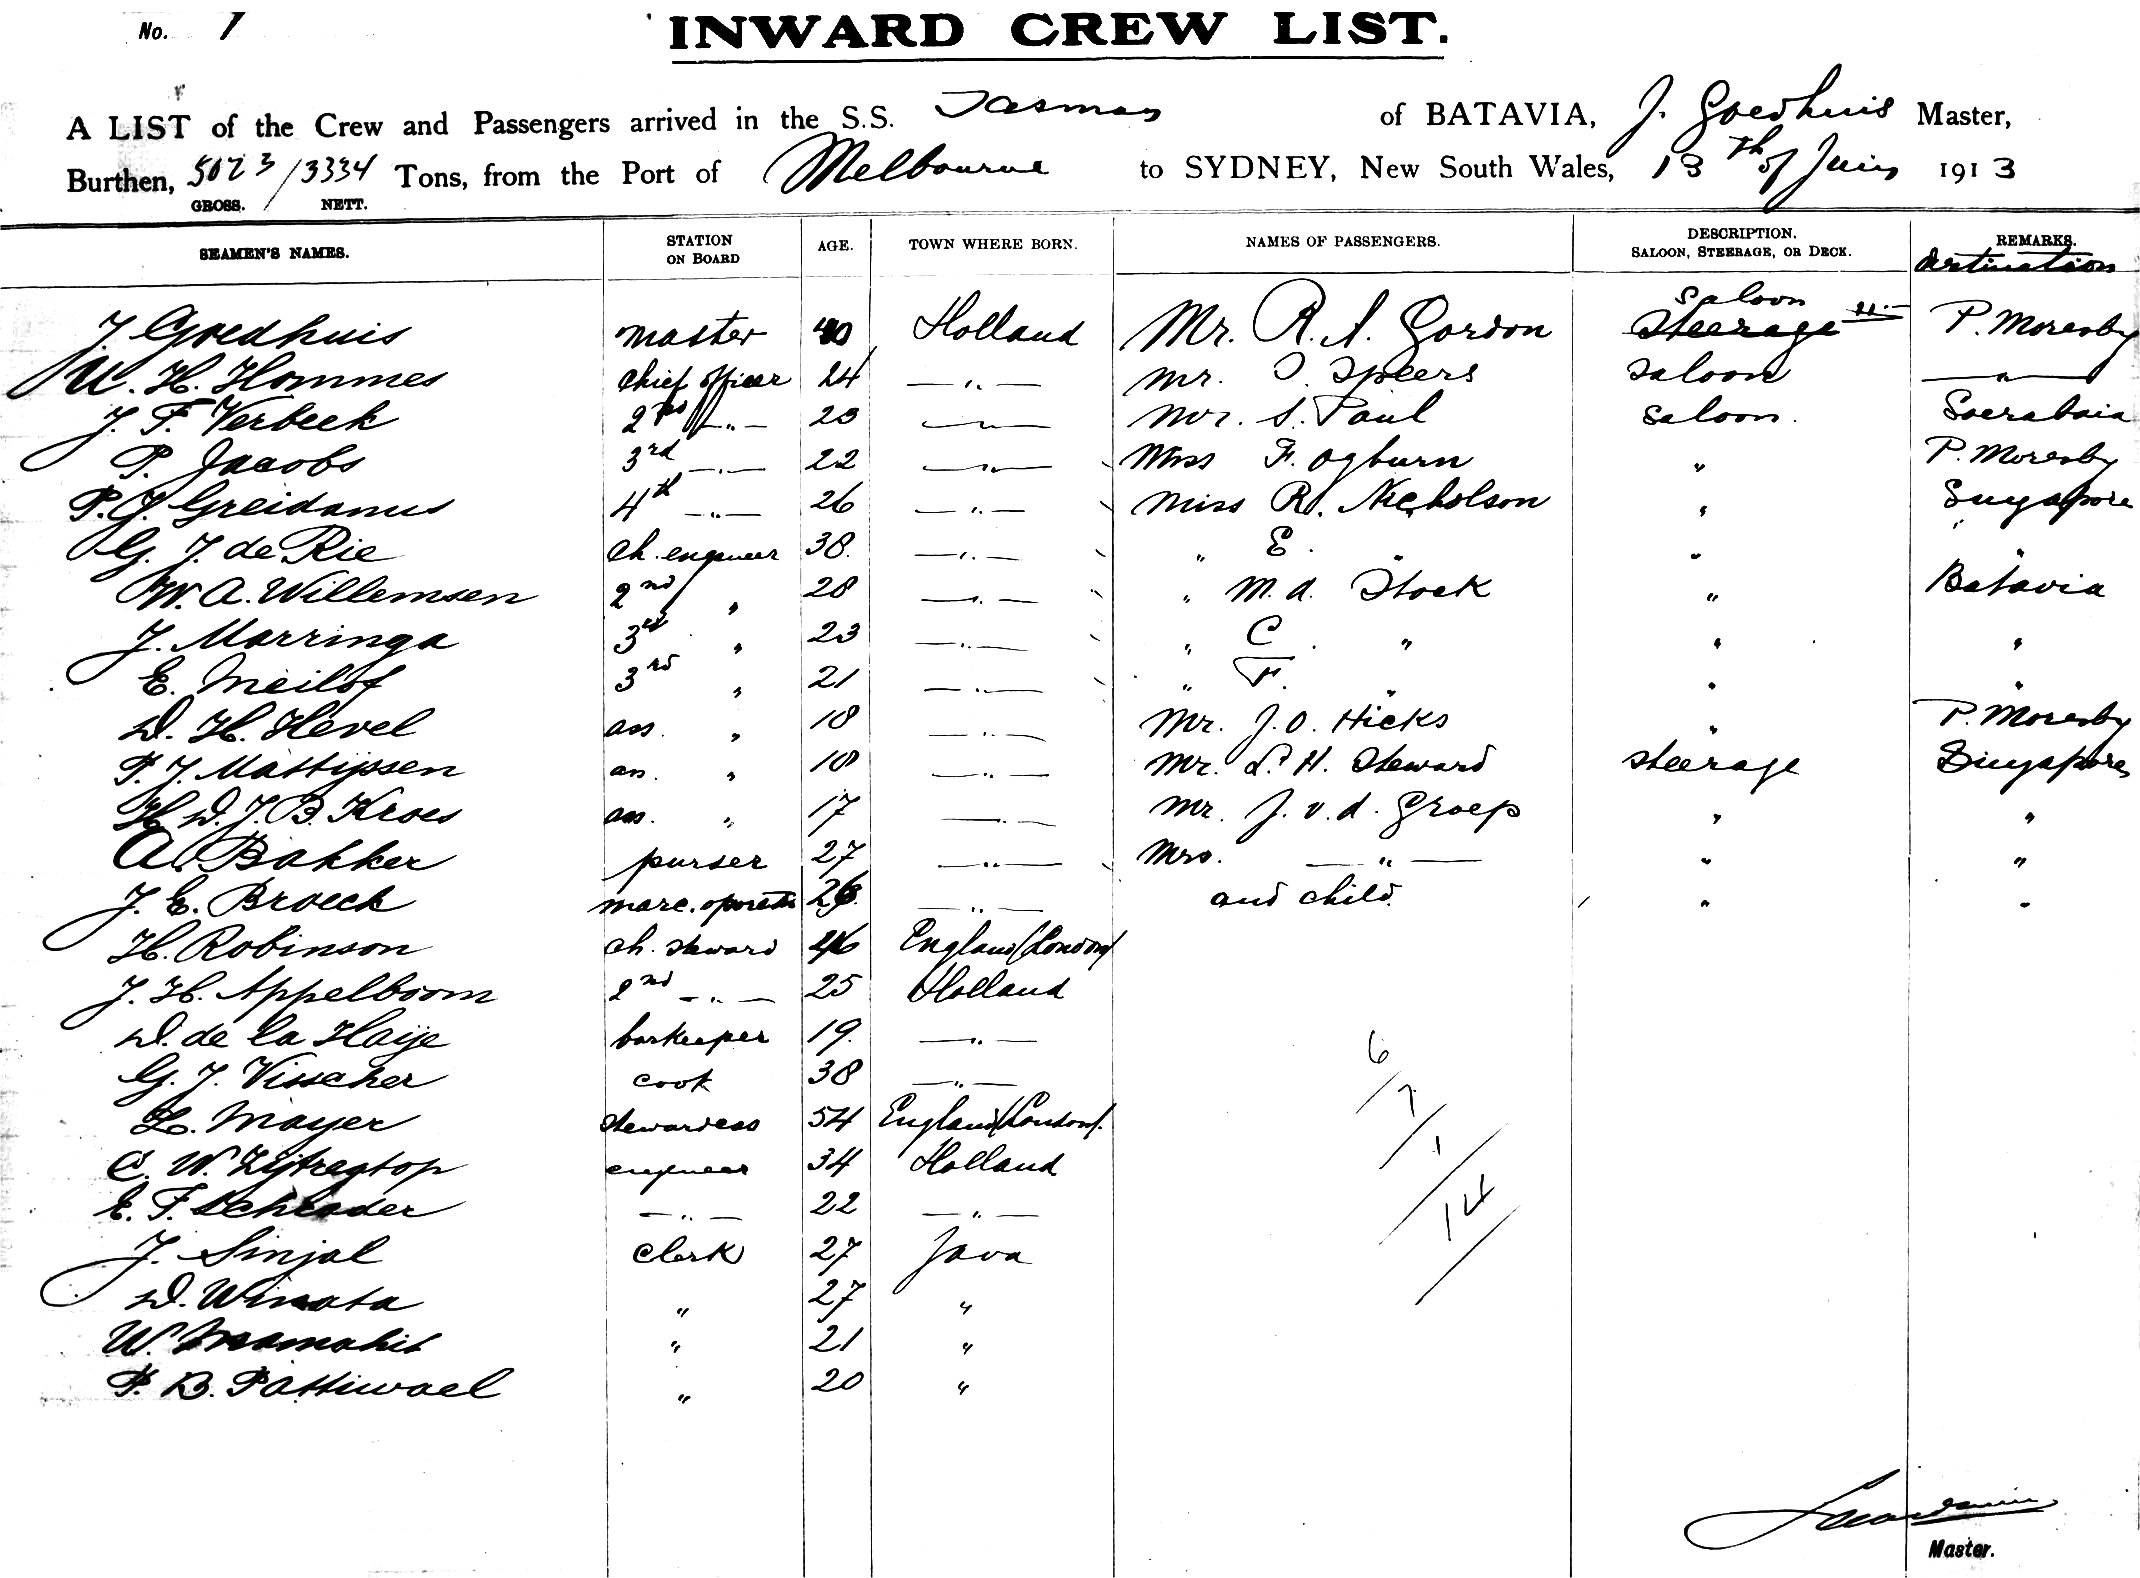 No. 1
INWARD CREW LIST.
A LIST of the Crew and Passengers arrived in the S.S. Tasman of BATAVIA, J. Goedhuis Master,
Burthen, 5023/3334 Tons, from the Port of Melbourne to SYDNEY, New South Wales, 13th of Juni 1913
GROSS. NETT.
SEAMEN'S NAMES. STATION ON BOARD AGE. TOWN WHERE BORN. NAMES OF PASSENGERS. DESCRIPTION. SALOON, STEERAGE, OR DECK. REMARKS.
destination
saloon
J. Goedhuis master 40 Holland Mr. R. A. Gordon steerage P. Moresby
W. H. Hommes chief officer 24 —„— Mr. Speers saloon —„—
J. F. Verbeek 2nd —„— 23 —„— Mr. S. Paul saloon. Soerabaia
P. Jacobs 3rd —„— 22 —„— Miss F. Ogburn „ P. Moresby
P. J. Greidanus 4th —„— 26 —„— Miss R. Nicholson „ Singapore
G. J. de Rie ch. engineer 38 —„— „ E. „ „ „
W. A. Willemsen 2nd „ 28 —„— „ M. A. Stock „ Batavia
J. Marringa 3rd „ 23 —„— „ C „ „ „
E. Meilof 3rd „ 21 —„— „ F. „ „ „
D. H. Hevel ass. „ 18 —„— Mr. J. O. Hicks „ P. Moresby
P. J. Mattijssen ass. „ 18 —„— Mr. L. H. Steward steerage Singapore
H. D. J. B. Kroes ass. „ 17 —„— Mr. J. v. d. Groep „ „
A. Bakker purser 27 —„— Mrs. —„— „ „
J. E. Broeck marc. operator —„— and child. „ „
H. Robinson ch. steward 46 England (London)
J. H. Appelboom 2nd —„— 25 Holland
D. de la Haije barkeeper 19 —„—
G. J. Visscher cook 38 —„— 6
L. Mayer stewardess 54 England (London). 7
C. W. Zijtregtop engineer 34 Holland 1
E. F. Schrader —„— 22 —„— 14
J. Sinjal clerk 27 Java
D. Winata „ 27 „
W. Mamahit „ 21 „
P. B. Pattiwael „ 20 „
Master.